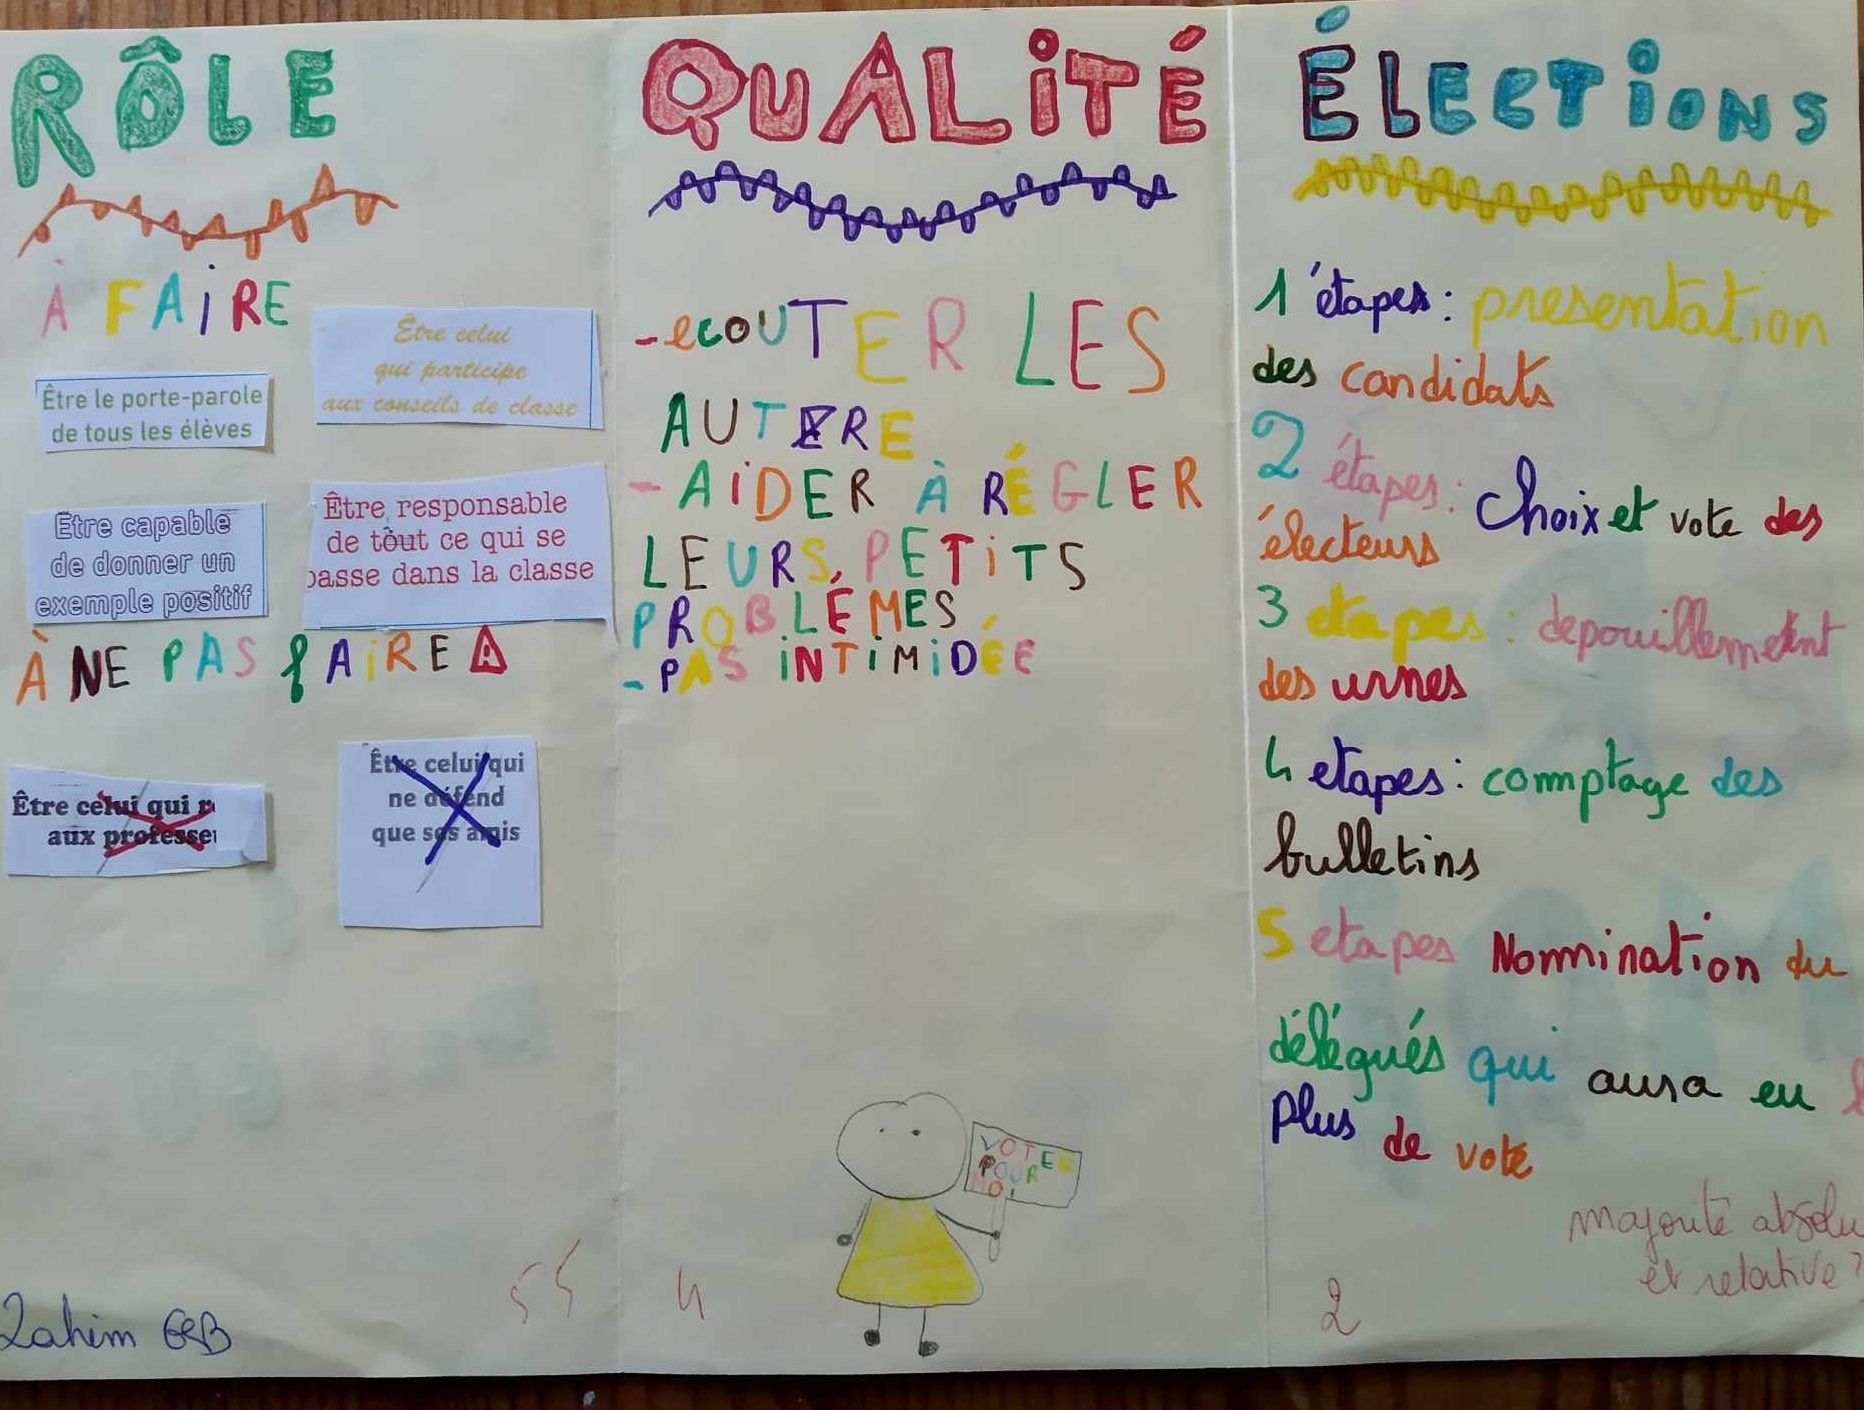 RÔLE
À FAiRE
Être celui
qui participe
aux conseils de classe
Être le porte-parole
de tous les élèves
Être capable
de donner un
exemple positif
Être responsable
de tout ce qui se
passe dans la classe
À NE PAS fAiRE
Être celui qui
aux
Être celui qui
ne défend
que ses amis
55
QUALiTÉ
-ecOUTER LES
AUTRE
- AiDER À RÉGLER
LEURS PETiTS
PROBLÉMES
- PAS iNTiMiDÉE
VOTER
POUR
MOi
4
ÉLECTiONS
1 étapes: presentation
des candidats
2 étapes: Choix et vote des
électeurs
3 etapes: depouillement
des urnes
4 etapes: comptage des
bulletins
5 etapes Nommination du
délégués qui aura eu
plus de vote
majorité
et relative?
2